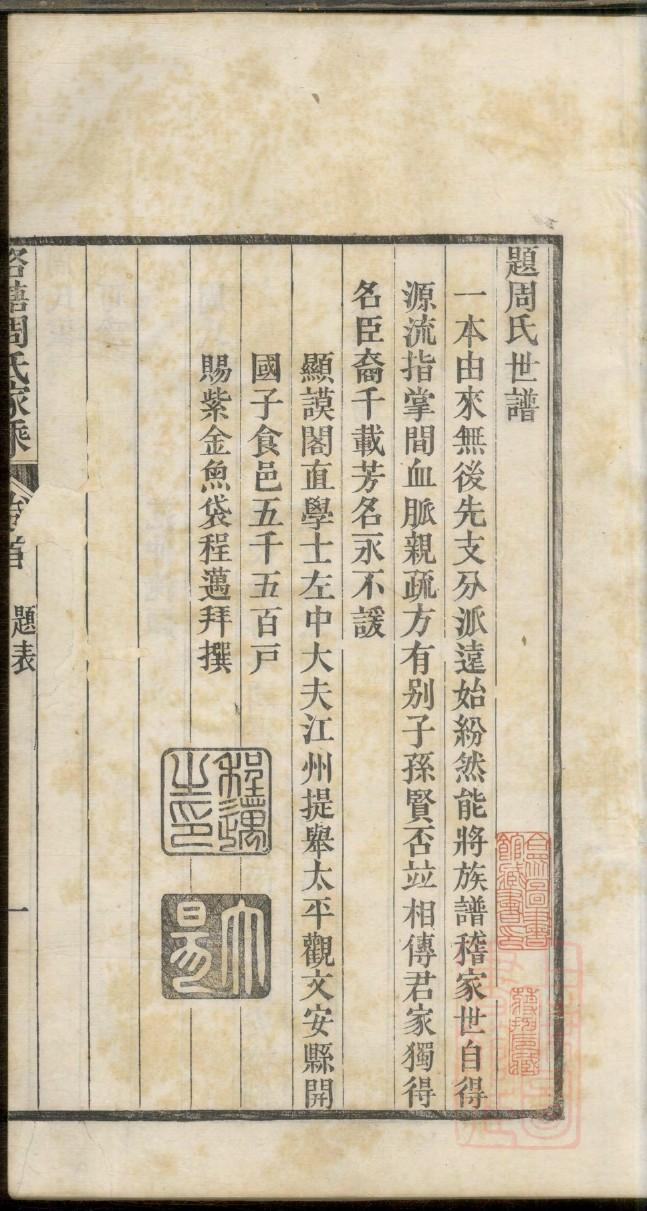 題周氏世譜
一本由來無後先支分派遠始紛然能將族譜稽家世自得
源流指掌間血脈親疏方有别子孫賢否竝相傳君家獨得
名臣裔千載芳名永不諼
顯謨閣直學士左中大夫江州提舉太平觀文安縣開
國子食邑五千五百戸
賜紫金魚袋程邁拜撰
程邁之印
周氏家乘
題表
一